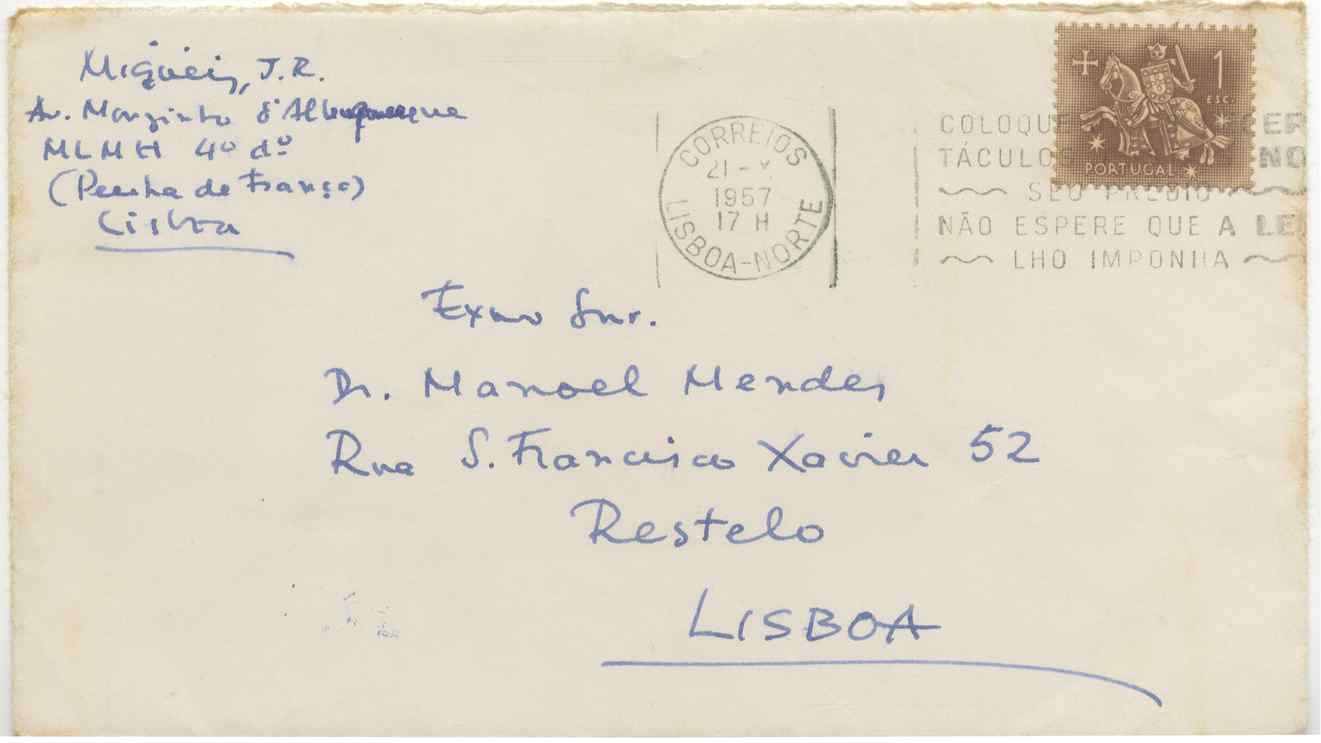 Miguéis, J.R.
Av. Mouzinho d'Albuquerque
MLMH 4º dº
(Penha de França)
Lisboa
CORREIOS
21-X.
1957
17 H
LISBOA-NORTE
COLOQU ER
TÁCULO NO
SEU PRÉDIO
NÃO ESPERE QUE A LE
LHO IMPONHA
1
ESC.
PORTUGAL
Exmo Snr.
Dr. Manoel Mendes
Rua S. Francisco Xavier 52
Restelo
LISBOA